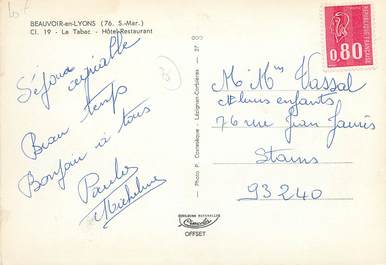 BEAUVOIR-en-LYONS (76. S.-Mar.)
Cl. 19 - Le Tabac - Hôtel-Restaurant
Séjour agréable
Beau temps
Bonjour à tous
Paulo
Micheline
Photo P. Castesèque - Lézignan-Corbières - 27
REPUBLIQUE FRANÇAISE
0,80
M. Mme Vassal
et leurs enfants
76 rue Jean Jaurès
Stains
93240
COULEURS NATURELLES
OFFSET